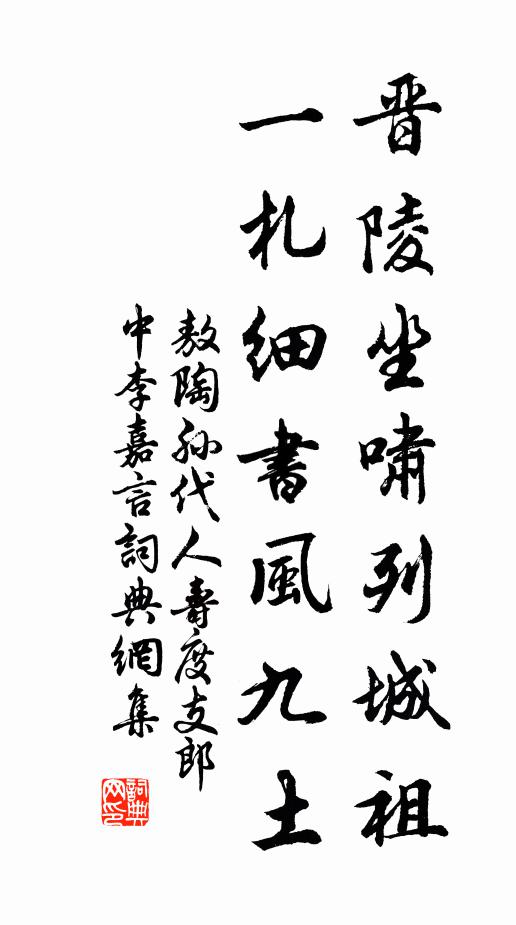 晋陵坐嘯列城祖
一札細書風九土
敖陶孫代人壽度支郎
中李嘉言詞典網集
詞典
网印